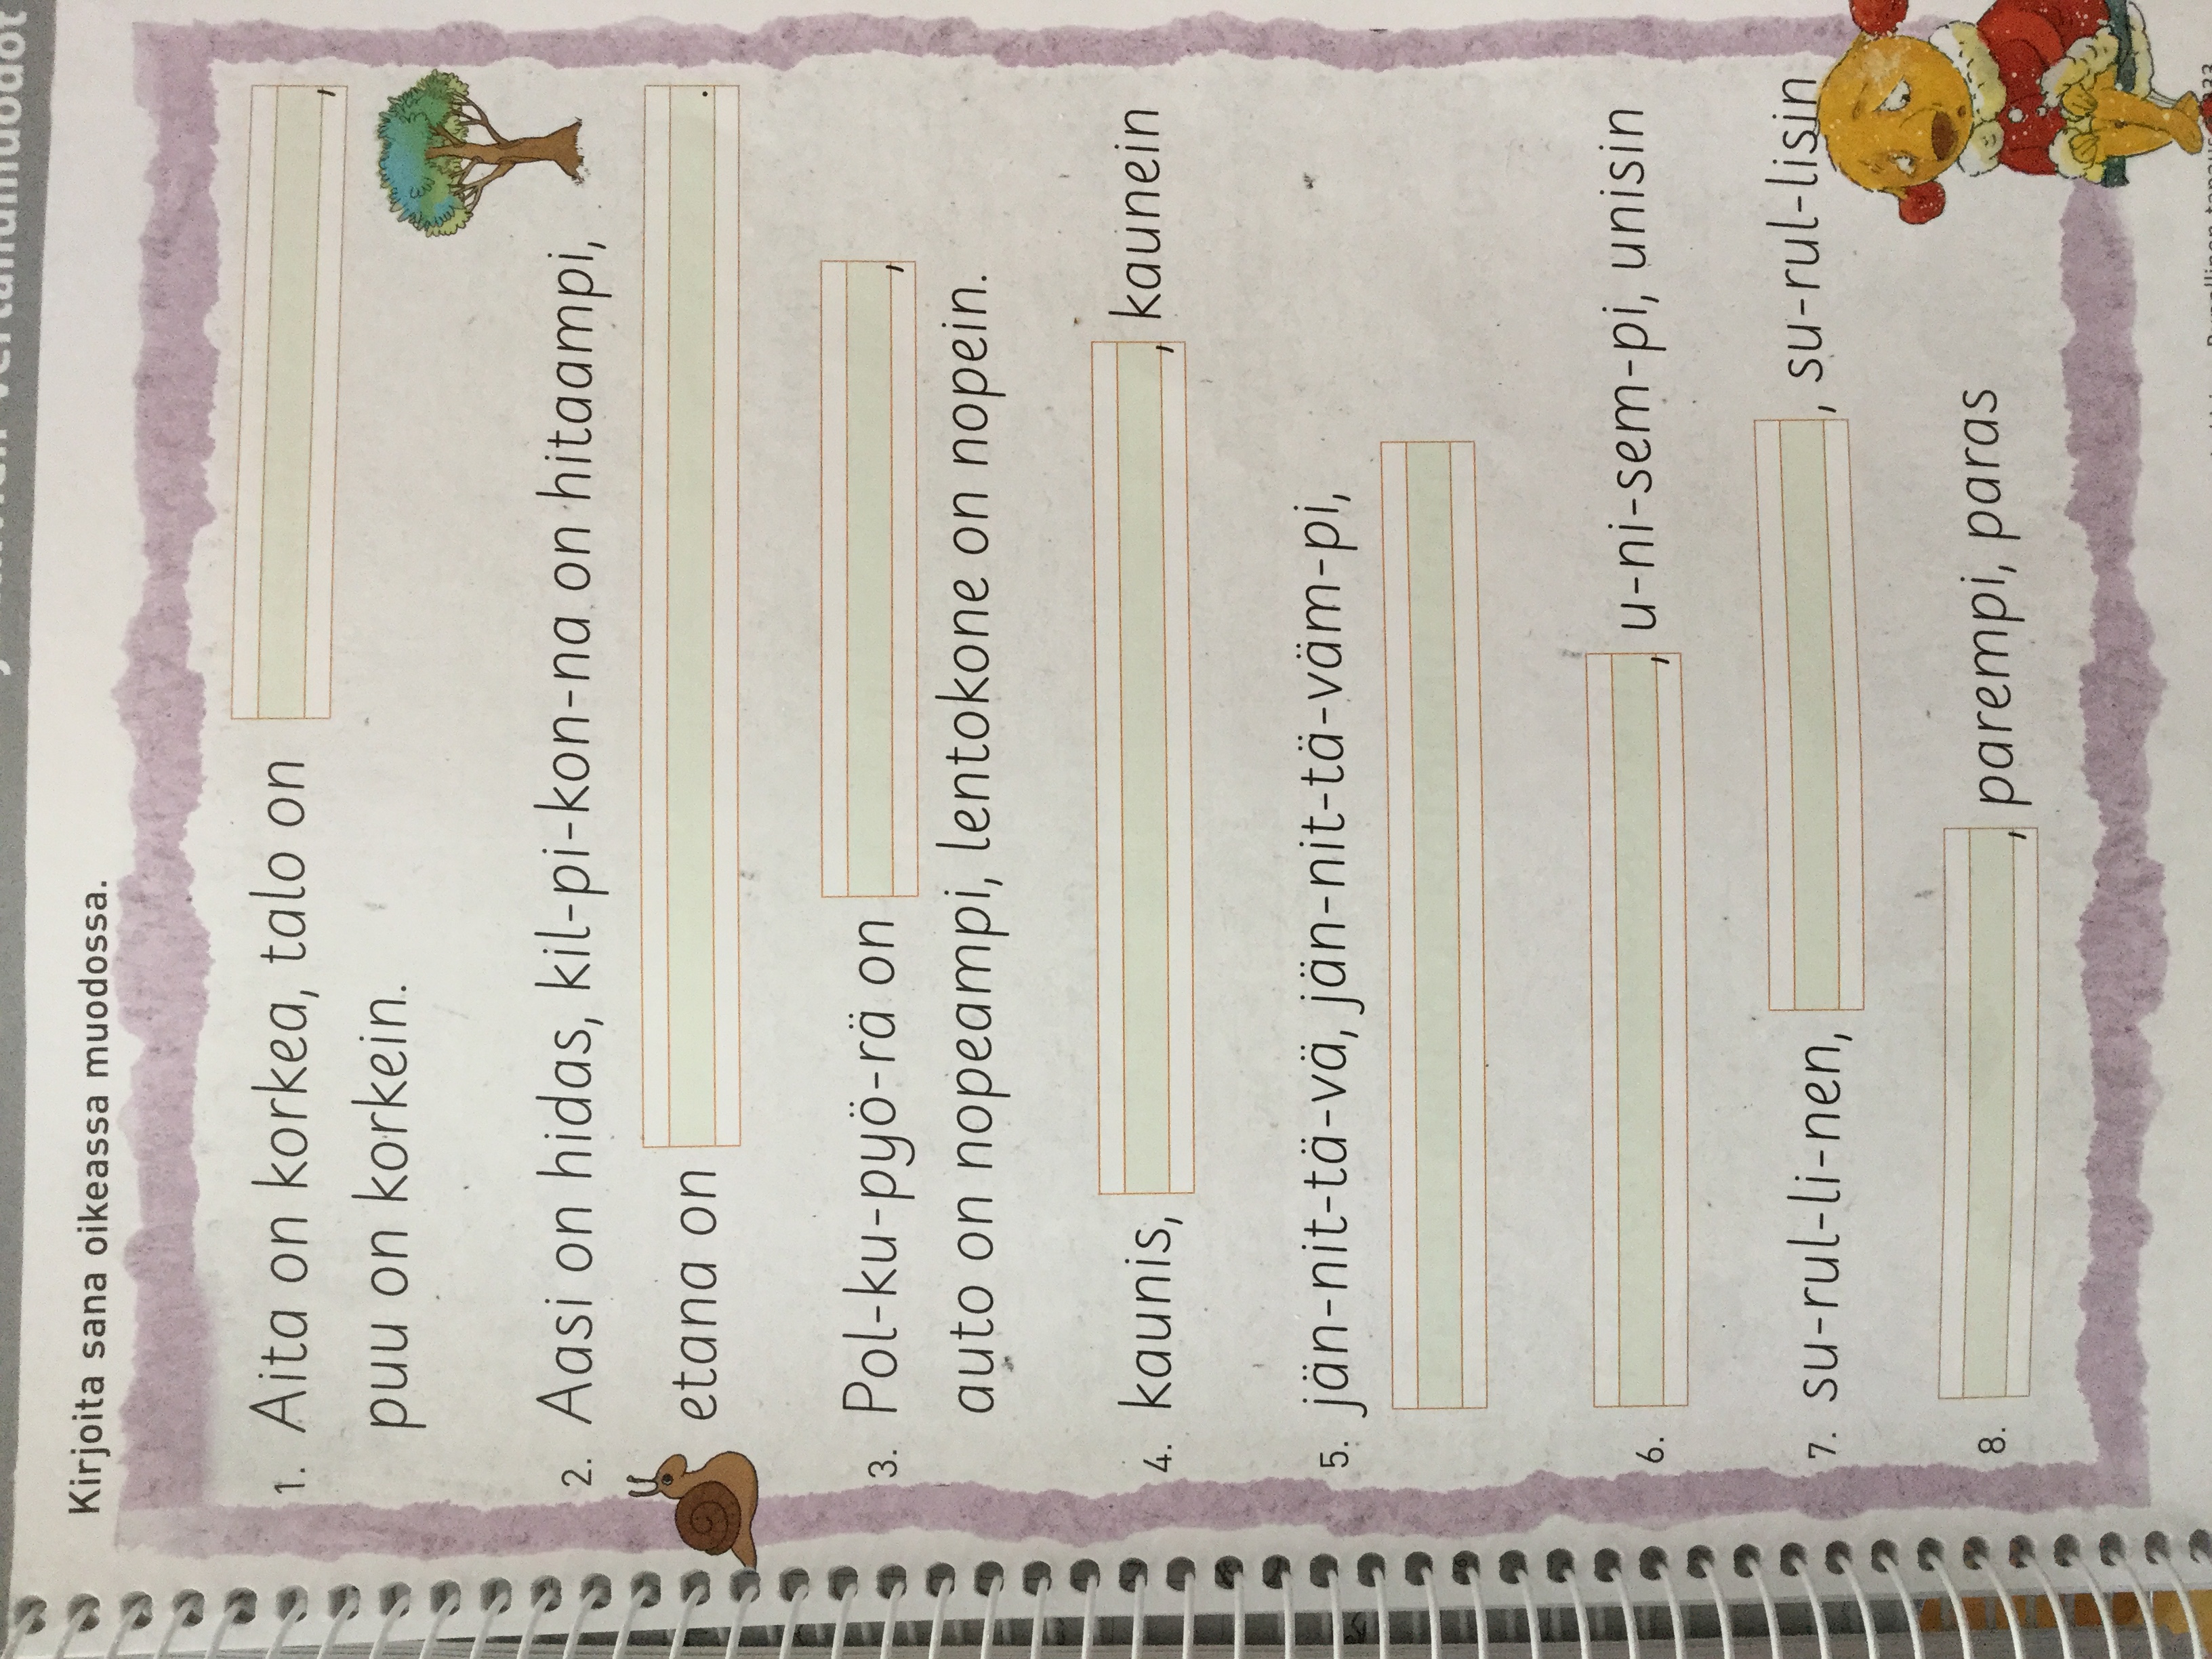 Kirjoita sana oikeassa muodossa.
1. Aita on korkea, talo on ,
puu on korkein.
2. Aasi on hidas, kil-pi-kon-na on hitaampi,
etana on .
3. Pol-ku-pyö-rä on ,
auto on nopeampi, lentokone on nopein.
4. kaunis, , kaunein
5. jän-nit-tä-vä, jän-nit-tä-väm-pi,
6. , u-ni-sem-pi, unisin
7. su-rul-li-nen, , su-rul-lisin
8. , parempi, paras